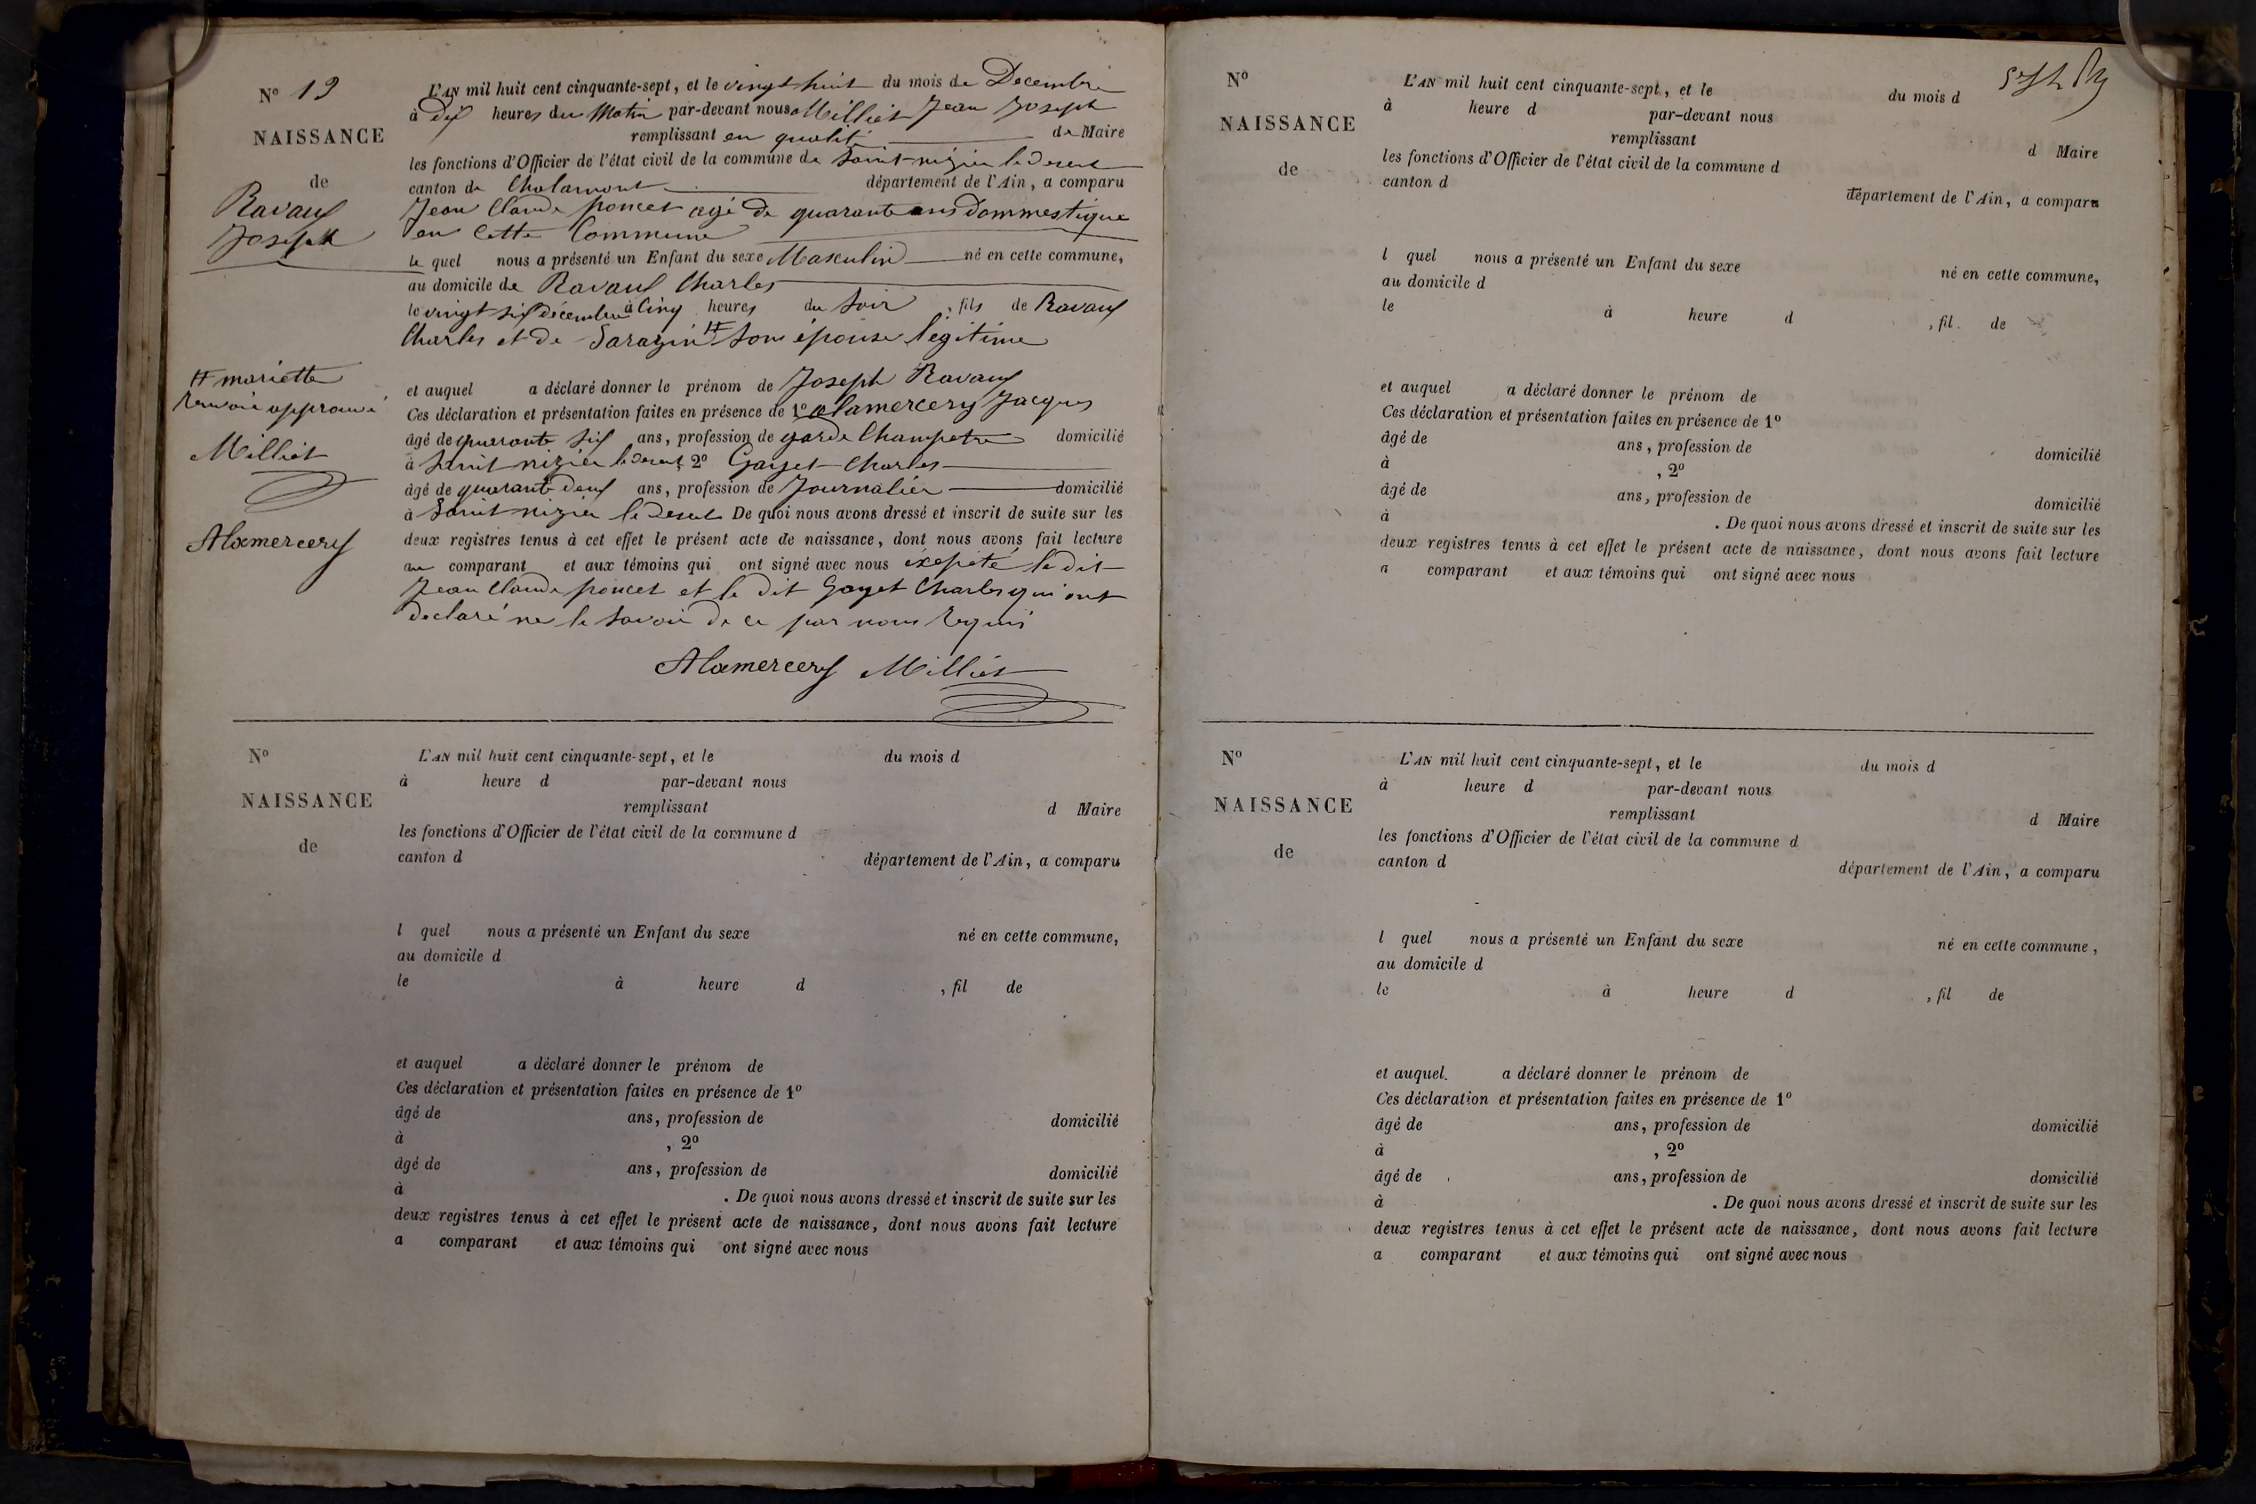 Nº 19
NAISSANCE
de
Ravaux
Joseph
L'AN mil huit cent cinquante-sept, et le vingt huit du mois de Decembre
à dix heures du Matin par-devant nous Milliet Jean Joseph
remplissant en qualité de Maire
les fonctions d'Officier de l'état civil de la commune de Saint nizier le desert
canton de Chalamont département de l'Ain, a comparu
Jean Claude poncet agé de quarante ans dommestique
en cette Commune
le quel nous a présenté un Enfant du sexe Masculin né en cette commune,
au domicile de Ravaux Charles
le vingt six décembre à Cinq heures du Soir, fils de Ravaux
Charles et de Sarazin # Son épouse légitime
# mariette
renvoie approuvé
Milliet
Alamercery
et auquel a déclaré donner le prénom de Joseph Ravaux
Ces déclaration et présentation faites en présence de 1º alamercery Jacques
âgé de quarante six ans, profession de garde Champetre domicilié
à Saint nizier le desert, 2º Gayet Charles
âgé de quarante deux ans, profession de Journalier domicilié
à Saint nizier le desert De quoi nous avons dressé et inscrit de suite sur les
deux registres tenus à cet effet le présent acte de naissance, dont nous avons fait lecture
au comparant et aux témoins qui ont signé avec nous éxepeté le dit
Jean Claude poncet et le dit Gayet Charles qui ont
declaré ne le Savoir de ce par nous requis
Alamercery Milliet
Nº
NAISSANCE
de
L'AN mil huit cent cinquante-sept, et le du mois d
à heure d par-devant nous
remplissant d Maire
les fonctions d'Officier de l'état civil de la commune d
canton d département de l'Ain, a comparu
l quel nous a présenté un Enfant du sexe né en cette commune,
au domicile d
le à heure d , fil de
et auquel a déclaré donner le prénom de
Ces déclaration et présentation faites en présence de 1º
âgé de ans, profession de domicilié
à , 2º
âgé de ans, profession de domicilié
à . De quoi nous avons dressé et inscrit de suite sur les
deux registres tenus à cet effet le présent acte de naissance, dont nous avons fait lecture
a comparant et aux témoins qui ont signé avec nous
Nº
NAISSANCE
de
L'AN mil huit cent cinquante-sept, et le du mois d
à heure d par-devant nous
remplissant d Maire
les fonctions d'Officier de l'état civil de la commune d
canton d département de l'Ain, a comparu
l quel nous a présenté un Enfant du sexe né en cette commune,
au domicile d
le à heure d , fil. de
et auquel a déclaré donner le prénom de
Ces déclaration et présentation faites en présence de 1º
âgé de ans, profession de domicilié
à , 2º
âgé de ans, profession de domicilié
à . De quoi nous avons dressé et inscrit de suite sur les
deux registres tenus à cet effet le présent acte de naissance, dont nous avons fait lecture
a comparant et aux témoins qui ont signé avec nous
Nº
NAISSANCE
de
L'AN mil huit cent cinquante-sept, et le du mois d
à heure d par-devant nous
remplissant d Maire
les fonctions d'Officier de l'état civil de la commune d
canton d département de l'Ain, a comparu
l quel nous a présenté un Enfant du sexe né en cette commune,
au domicile d
le à heure d , fil de
et auquel. a déclaré donner le prénom de
Ces déclaration et présentation faites en présence de 1º
âgé de ans, profession de domicilié
à , 2º
âgé de ans, profession de domicilié
à . De quoi nous avons dressé et inscrit de suite sur les
deux registres tenus à cet effet le présent acte de naissance, dont nous avons fait lecture
a comparant et aux témoins qui ont signé avec nous